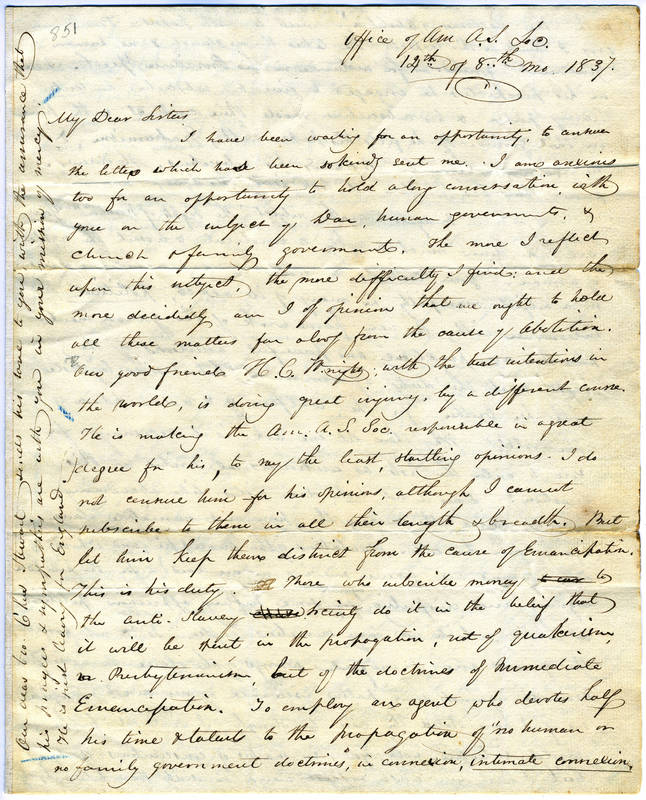 851
Office of Am A. S. Soc.
12th of 8th mo. 1837.
My Dear Sisters
I have been waiting for an opportunity, to answer
the letters which have been so kindly sent me. I am anxious
too for an opportunity to hold a long conversation with
you on the subject of War, human governments, &
church & family governments. The more I reflect
upon this subject, the more difficulty I find; and the
more decidedly am I of opinion that we ought to hold
all these matters far aloof from the cause of abolition.
Our good friend H. C. Wright, with the best intentions in
the world, is doing great injury, by a different course.
He is making the Am. A. S. Soc. responsible in a great
degree for his, to say the least, startling opinions. I do
not censure him for his opinions, although I cannot
subscribe to them in all their length & breadth. But
let him keep them distinct from the cause of Emancipation.
This is his duty. Those who subscribe money to
the anti-Slavery Society do it in the belief that
it will be spent in the propagation, not of quakerism,
or Presbyterianism, but of the doctrines of Immediate
Emancipation. To employ an agent who devotes half
his time & talents to the propagation of "no human or
no family government doctrines," in connexion, intimate connexion,
Our dear bro. Chas Stuart sends his love to you with the assurance that
his prayers & sympathies are with you in your mission of mercy.
He is just leaving for England.